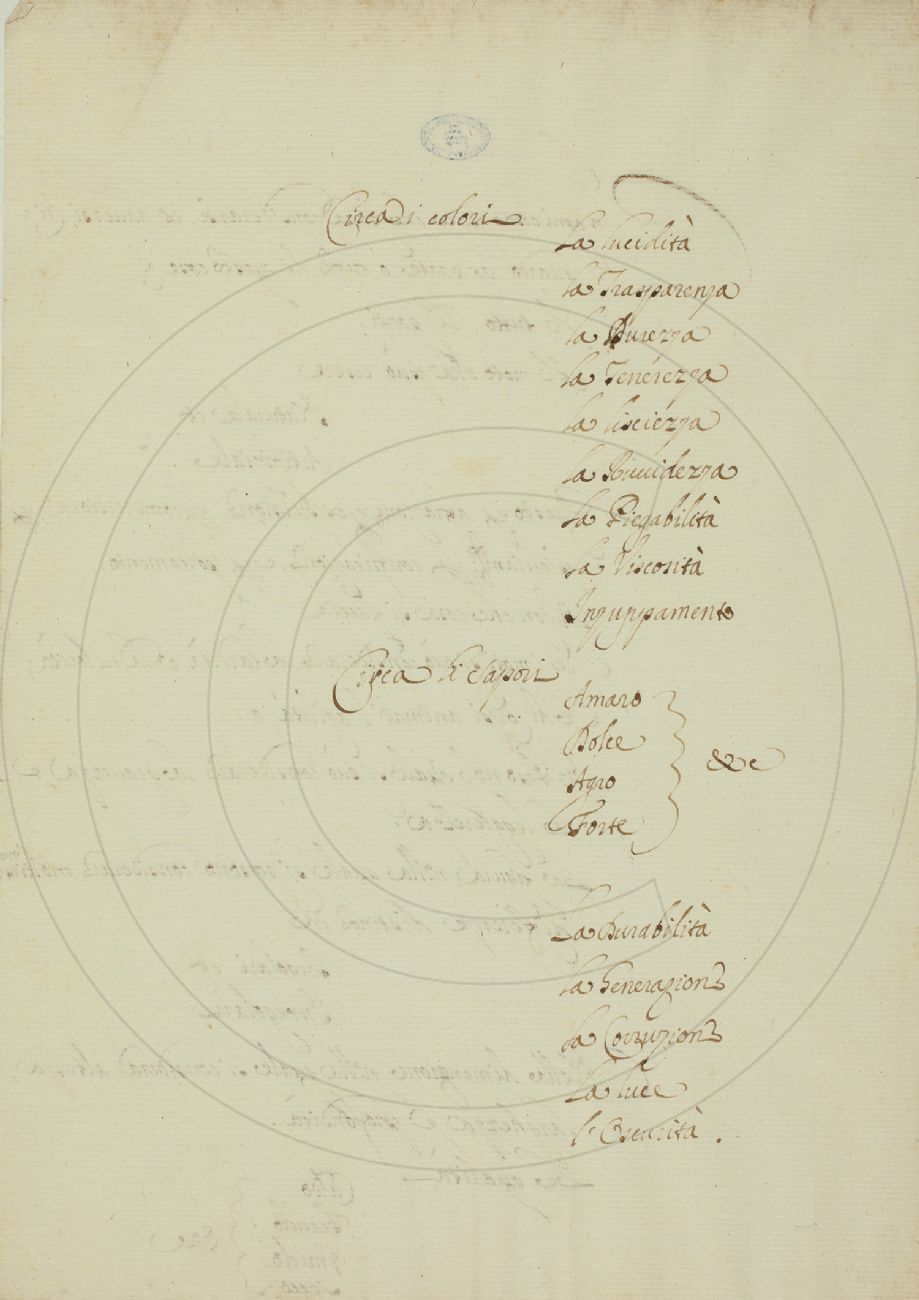 Circa i colori
La lucidità
la Trasparenza
la Durezza
la Tenerezza
la lisciezza
la Ruuidezza
la Piegabilità
la Viscosità
Inzuppamento
Circa li Sapori
Amaro
Dolce
Agro
Forte
La Durabilità
la Generazione
la Corruzione
La luce
l'Oscurità .